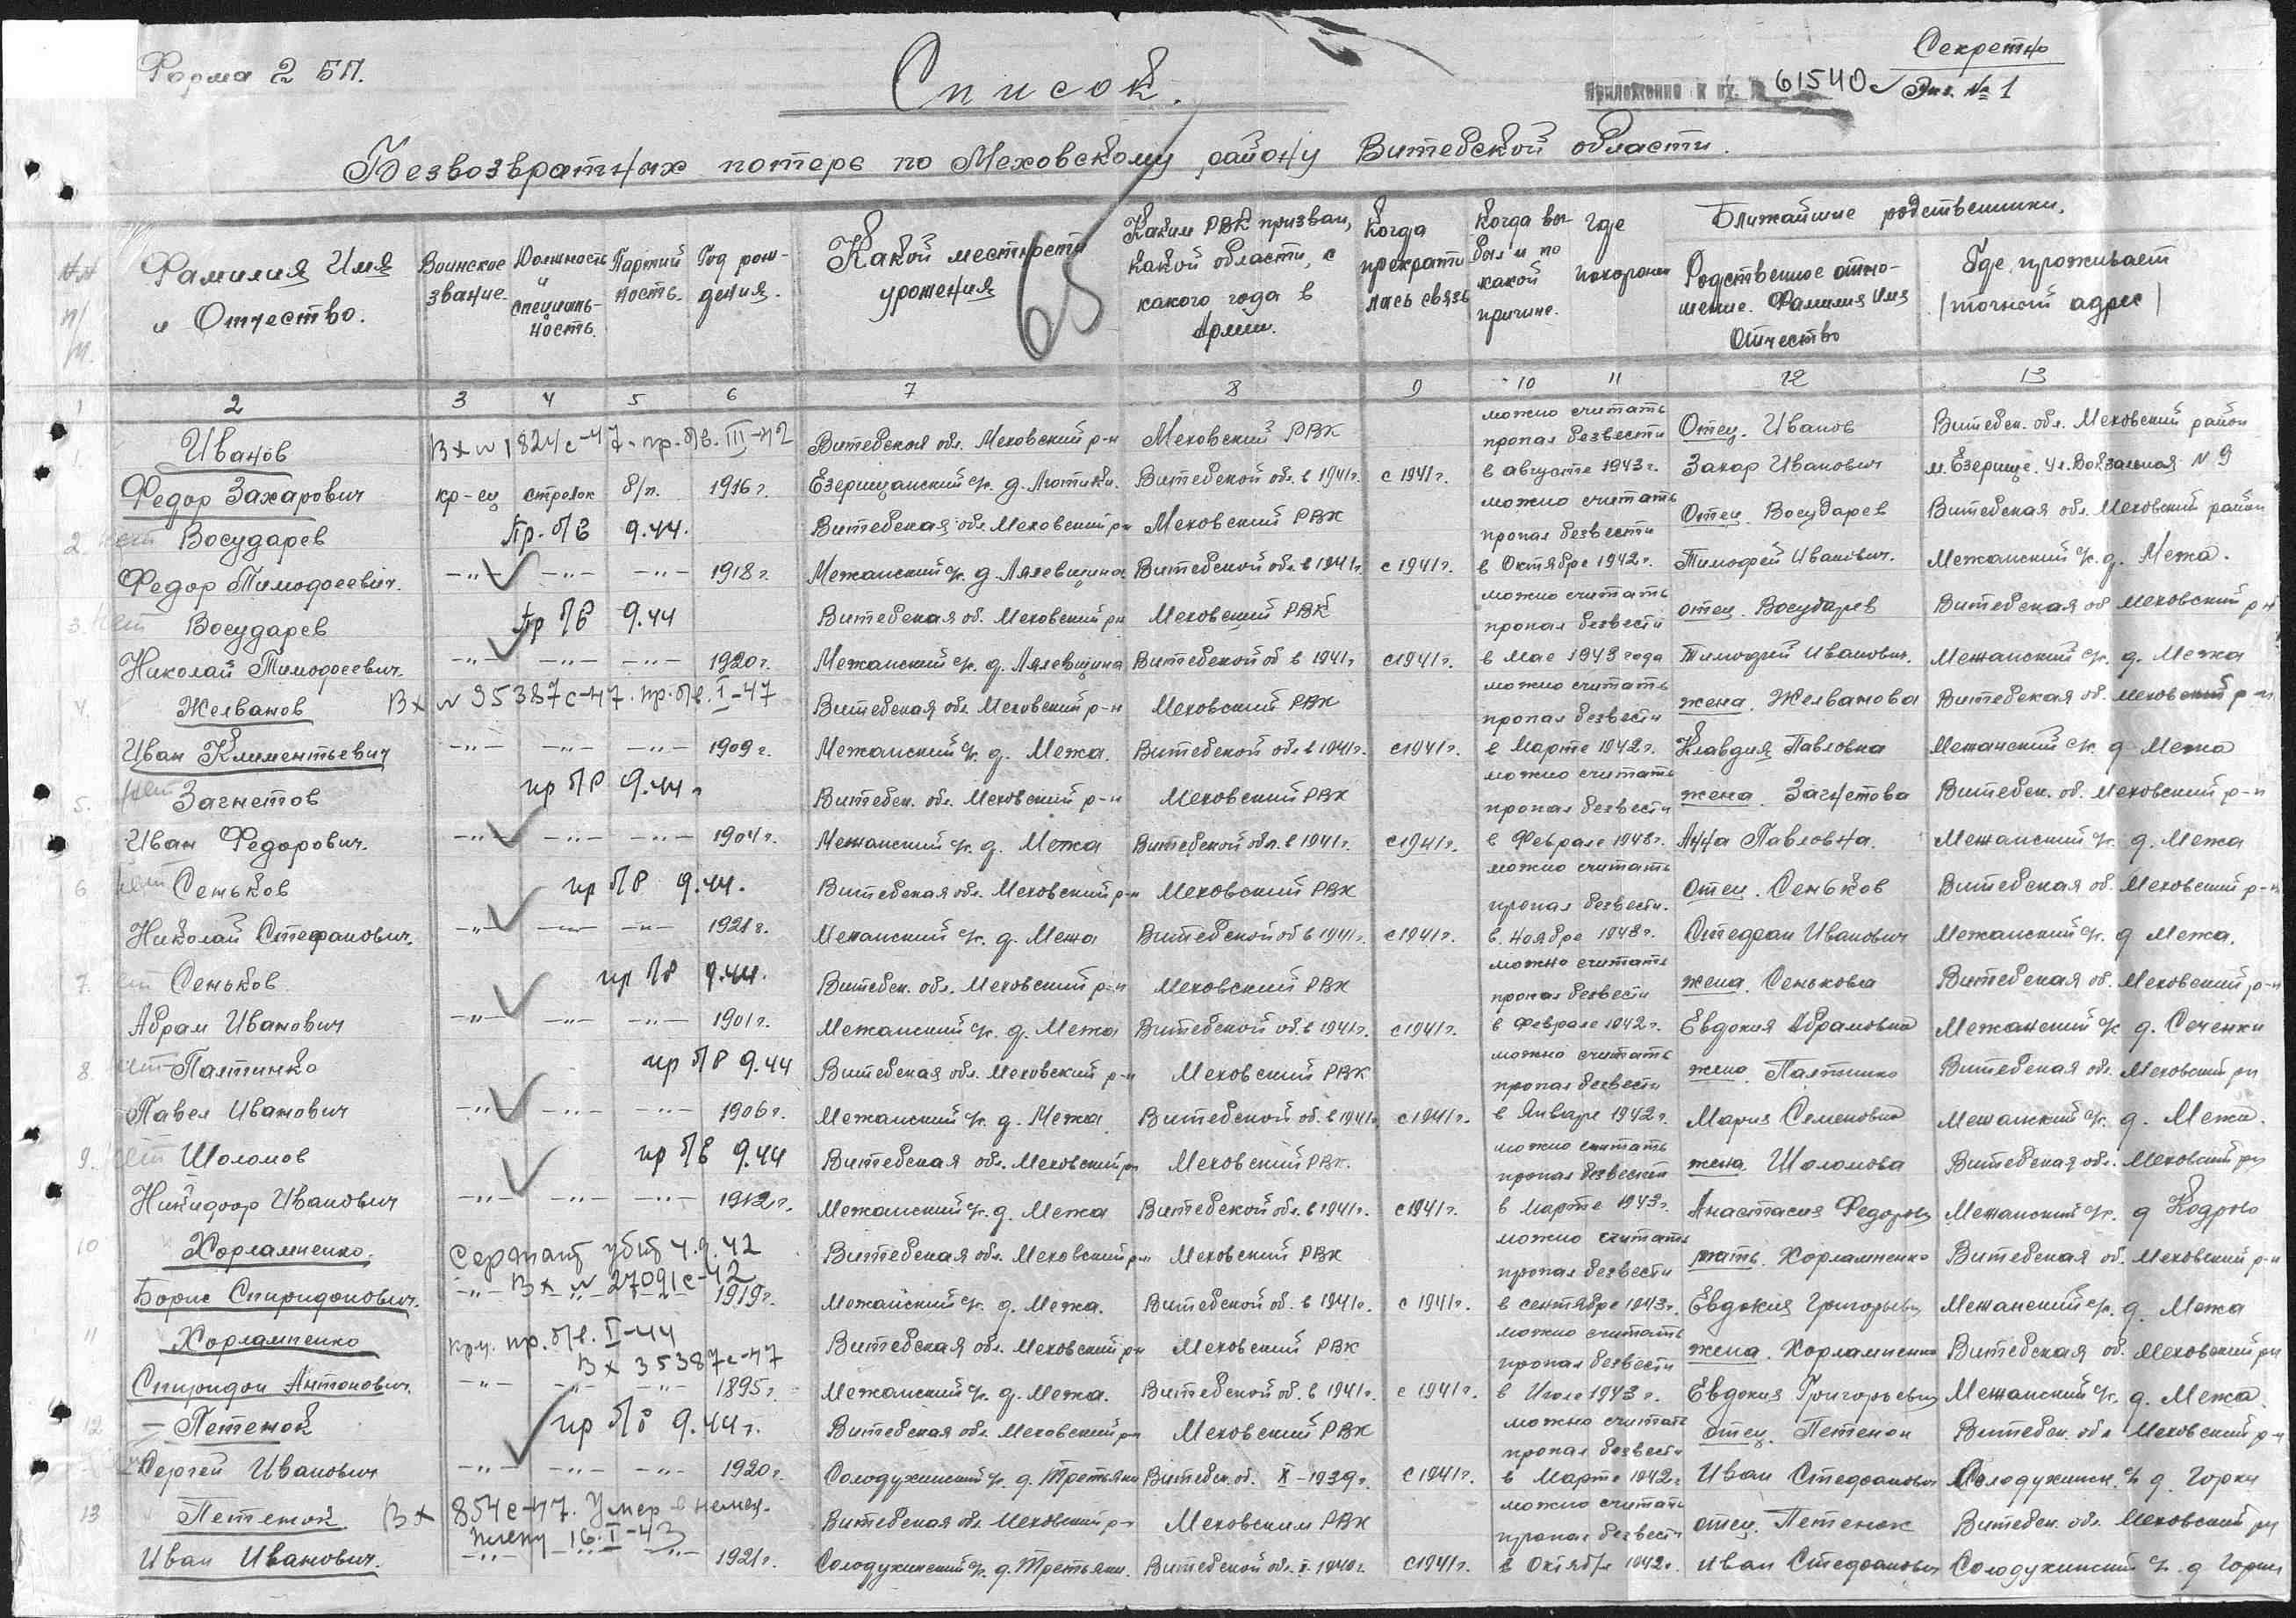 Форма 2 БП.
Секретно
Список.
Приложение к вх. 61540 Экз. № 1
Безвозвратных потерь по Меховскому району Витебской области.
65
№№ п/п.
Фамилия Имя и Отчество.
Воинское звание.
Должность и специальность.
Партийность.
Год рождения.
Какой местности урожения
Каким РВК призван, какой области, с какого года в Армии.
Когда прекратилась связь
Когда выбыл и по какой причине.
Где похоронен
Ближайшие родственники.
Родственное отношение. Фамилия Имя Отчество
Где проживает /точный адрес/
1 2 3 4 5 6 7 8 9 10 11 12 13
можно считать
1. Иванов Вх № 1824с-47. пр. б/в. III-42 Витебская обл. Меховский р-н Меховский РВК пропал безвести Отец. Иванов Витебск. обл. Меховский район
Федор Захарович кр-ец стрелок б/п. 1916 г. Езерищанский с/с. д. Витебской обл. в 1941г. с 1941г. в августе 1943г. Захар Иванович м. Езерище. ул. Вокзальная № 9
можно считать
2. нет Восударев пр. б/в 9.44. Витебская обл. Меховский рн Меховский РВК пропал безвести Отец. Восударев Витебская обл. Меховский район
Федор Тимофеевич. -"- -"- -"- 1918 г. Межанский с/с. д. Лялевщина Витебской обл. в 1941г. с 1941г. в Октябре 1942г. Тимофей Иванович. Межанский с/с. д. Межа.
можно считать
3. нет Восударев пр б/в 9.44 Витебская об. Меховский рн Меховский РВК пропал безвести отец. Восударев Витебская об Меховский р н
Николай Тимофеевич. -"- -"- -"- 1920 г. Межанский с/с. д. Лялевщина Витебской об в 1941г с1941г. в Мае 1943 года Тимофей Иванович. Межанский с/с. д. Межа
можно считать
4. Желванов Вх № 35387с-47. пр. б/в. I-47 Витебская обл. Меховский р-н Меховский РВК пропал безвести жена. Желванова Витебская об. Меховский р-н
Иван Климентьевич -"- -"- -"- 1909 г. Межанский с/с. д. Межа. Витебской обл. в 1941г. с1941г. в Марте 1942г. Клавдия Павловна Межанский с/с. д Межа
можно считать
5. нет Загнетов пр б/в 9.44 г Витебск. обл. Меховский р-н Меховский РВК пропал безвести жена. Загнетова Витебск. об. Меховский р-н
Иван Федорович. -"- -"- -"- 1904 г. Межанский с/с. д. Межа Витебской обл. в 1941г. с1941г. в Феврале 1943г. Анна Павловна. Межанский с/с. д. Межа
можно считать
6 нет Сеньков пр б/в 9.44. Витебская обл. Меховский р-н Меховский РВК пропал безвести. Отец. Сеньков Витебская об. Меховский р-н
Николай Стефанович. -"- -"- -"- 1921 г. Межанский с/с. д. Межа Витебской об в 1941г. с1941г. в Ноябре 1943г. Стефан Иванович Межанский с/с. д Межа.
можно считать
7. нет Сеньков пр б/в 9.44. Витебск. обл. Меховский р-н Меховский РВК пропал безвести жена. Сенькова Витебская об. Меховский р-н
Абрам Иванович -"- -"- -"- 1901 г. Межанский с/с. д. Межа Витебской об. в 1941г. с1941г. в Феврале 1942г. Евдокия Абрамовна Межанский с/с д. Сеченки
можно считать
8. нет Палтинко пр б/в 9.44 Витебская обл. Меховский р-н Меховский РВК пропал безвести жена. Палтинко Витебская обл. Меховский рн
Павел Иванович -"- -"- -"- 1906 г. Межанский с/с. д. Межа Витебской об. в 1941г с1941г. в Январе 1942г. Мария Семеновна Межанский с/с. д. Межа.
можно считать
9. нет Шоломов пр б/в 9.44 Витебская обл. Меховский рн Меховский РВК. пропал безвести жена Шоломова Витебская обл. Меховский рн
Никифор Иванович -"- -"- -"- 1912 г. Межанский с/с. д. Межа Витебской обл. в 1941г. с1941г. в Марте 1943г. Анастасия Федоровн Межанский с/с. д Кадрово
можно считать
10 Хорлампенко. Сержант убит 4.9.42 Витебская обл. Меховский р-н Меховский РВК пропал безвести мать. Хорлампенко Витебская об. Меховский р-н
Борис Спиридонович. -"- Вх № 27091с-42 1919г. Межанский с/с. д. Межа. Витебской об. в 1941г. с 1941г. в сентябре 1943г. Евдокия Григорьевн Межанский с/с. д. Межа
можно считать
11 Хорлампенко кр-ц. пр. б/в. I-44 Витебская обл. Меховский рн Меховский РВК пропал безвести жена. Хорлампенко Витебская об. Меховский рн
Спиридон Антонович. -"- Вх 35387с-47 1895 г. Межанский с/с. д. Межа. Витебской об. в 1941г. с 1941г. в Июле 1943 г. Евдокия Григорьевн Межанский с/с. д. Межа.
можно считать
12 Петенок пр б/в 9.44 г. Витебская обл. Меховский рн Меховский РВК пропал безвести отец. Петенок Витебск. обл Меховский р-н
Сергей Иванович -"- -"- -"- 1920 г. Солодухинский с/с. д. Третьяки Витебск. об. X-1939г. с1941г. в Марте 1942г. Иван Стефанович Солодухинск. с/с д. Горки
можно считать
13 Петенок Вх 854с-47. Умер в немец. Витебская обл. Меховский р-н Меховским РВК пропал безвести отец. Петенок Витебск. обл. Меховский рн
Иван Иванович. плену 16.I-43 1921г. Солодухинский с/с. д. Третьяки. Витебской обл. 1940г. с1941г. в Октябре 1942г. Иван Стефанович Солодухинский с/с. д Горки